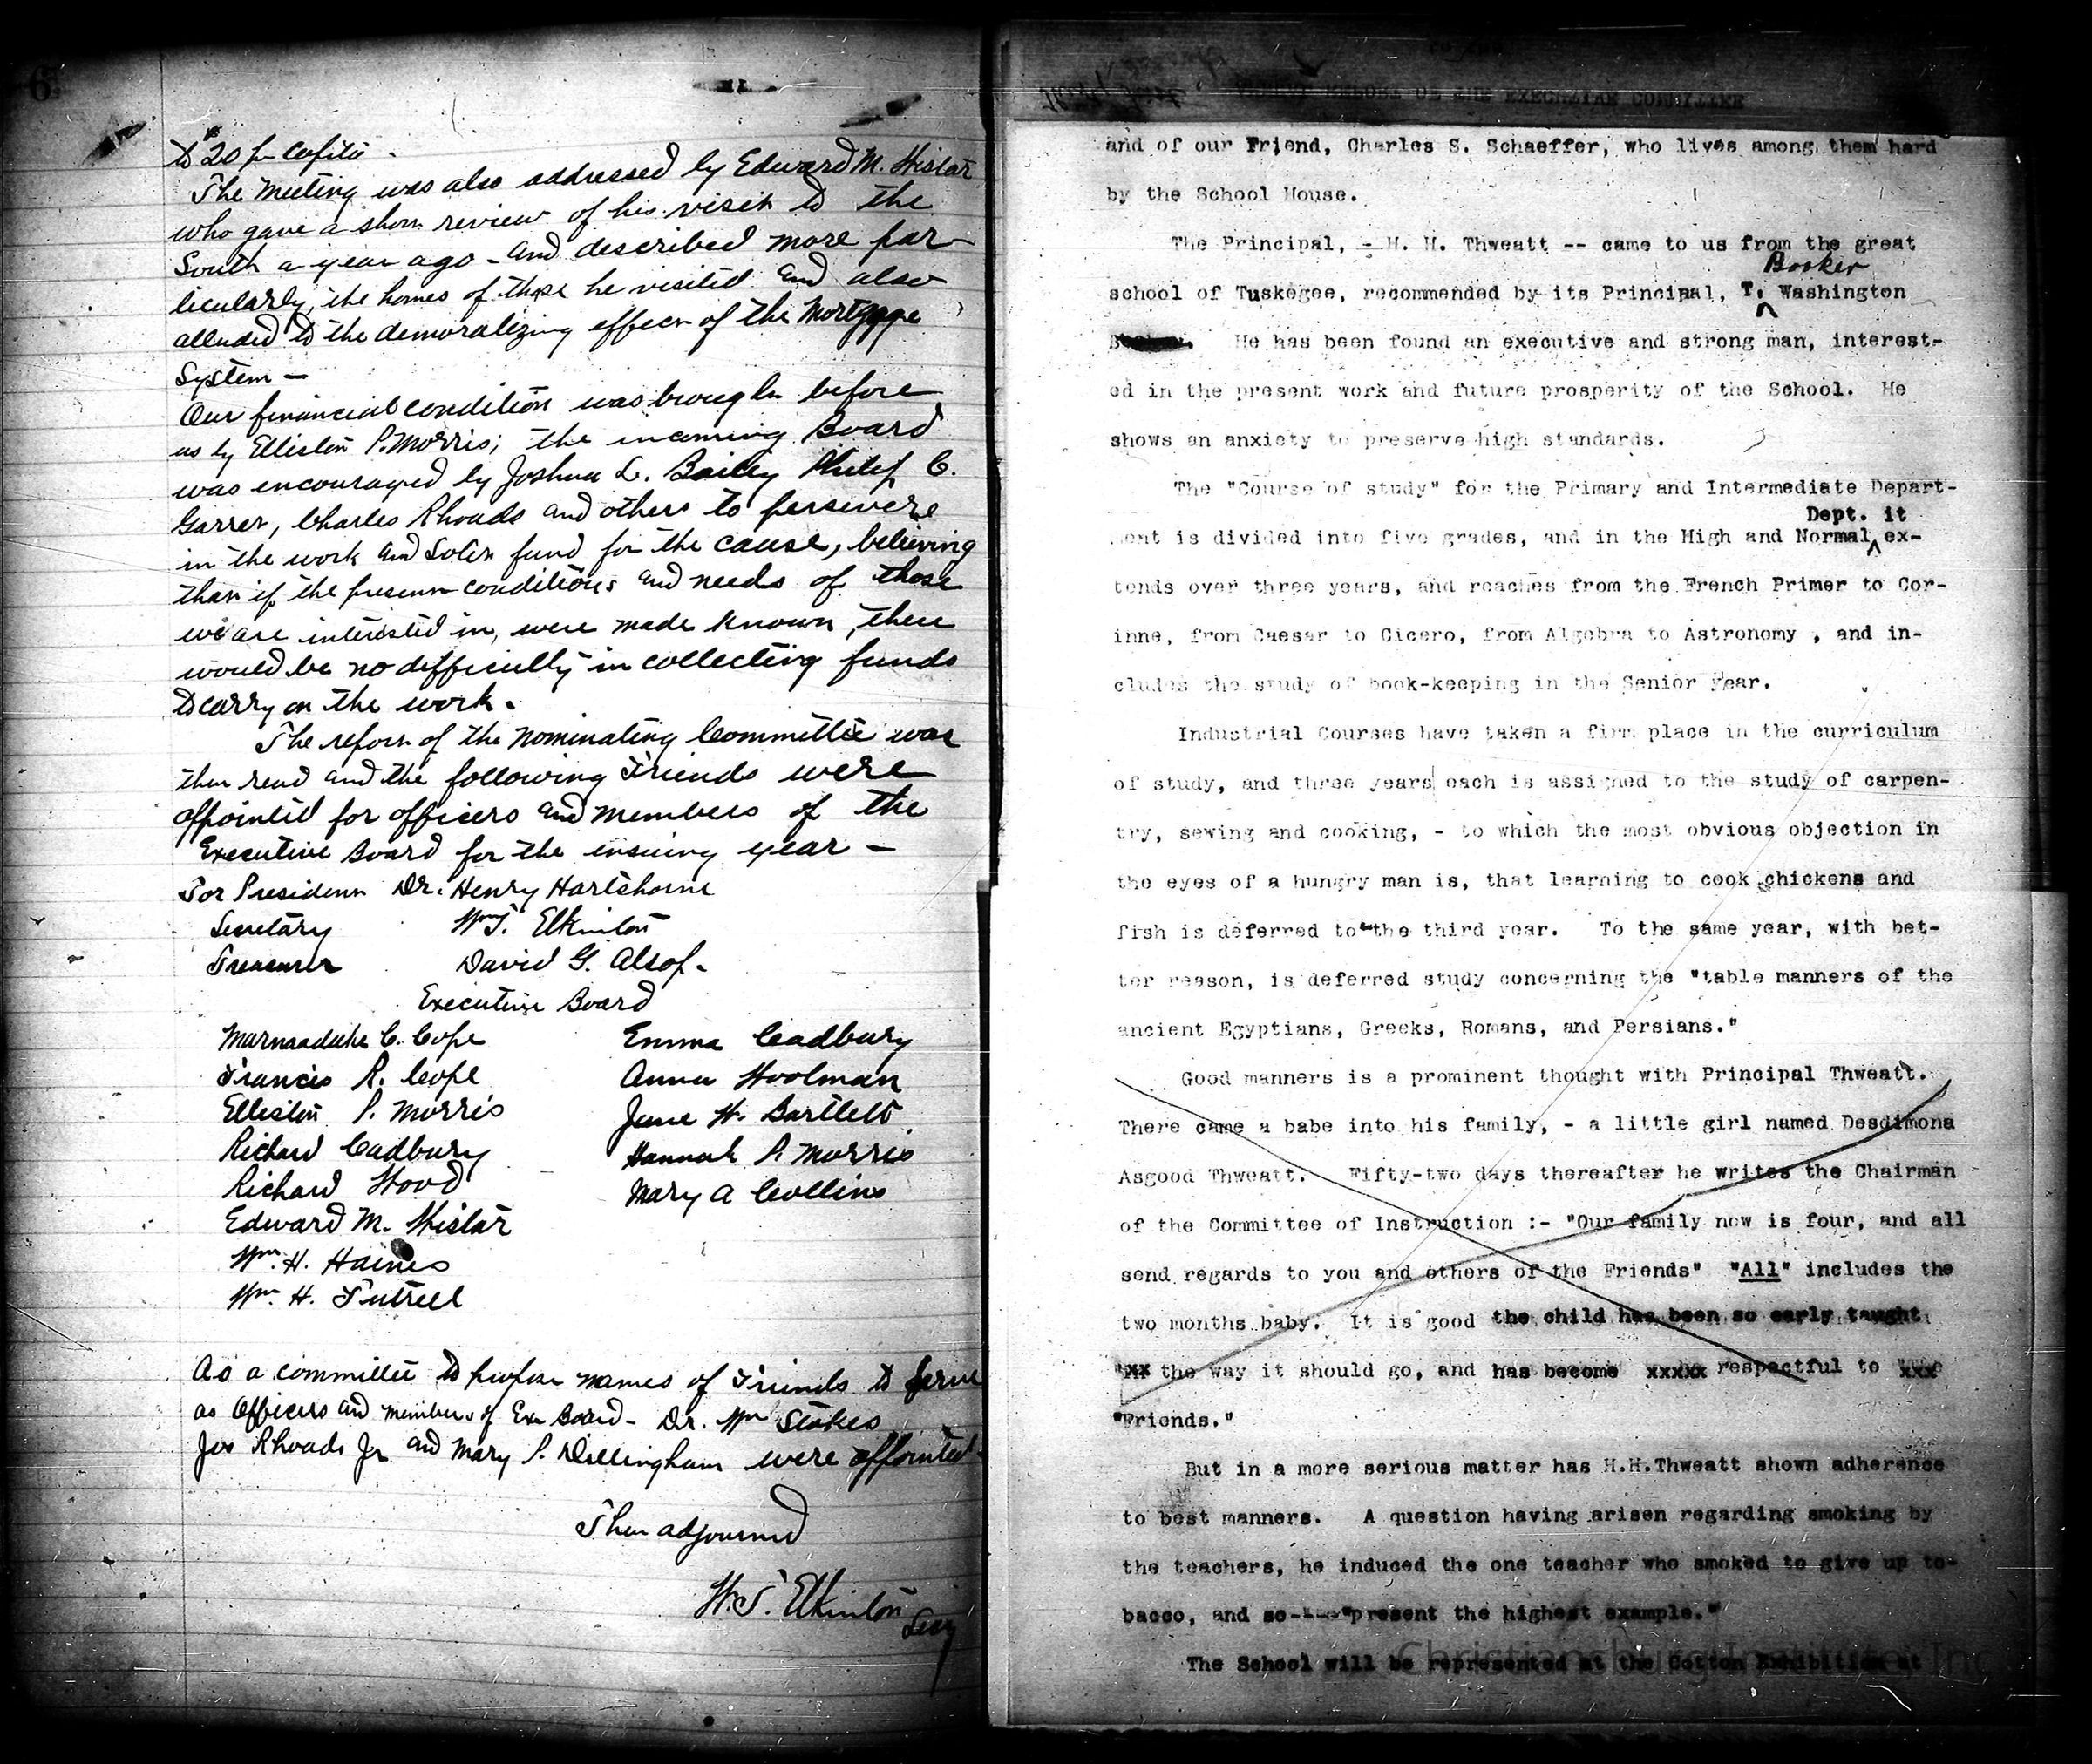 6
to 20 pr Capita -
The Meeting was also addressed by Edward M. Wistar
who gave a short review of his visit to the
South a year ago - and described more par-
ticularly, the homes of those he visited and also
alluded to the demoralizing effect of the Mortgage
System -
Our financial condition was brought before
us by Elliston P. Morris; the incoming Board
was encouraged by Joshua L. Baily Philip C.
Garrett, Charles Rhoads and others to persevere
in the work and Solicit fund for the cause, believing
that if the present conditions and needs of those
we are interested in, were made known, there
would be no difficulty in collecting funds
to carry on the work.
The report of the Nominating Committee was
then read and the following Friends were
appointed for officers and members of the
Executive Board for the ensuing year -
For President Dr. Henry Hartshorne
Secretary Wm T. Elkinton
Treasurer David G. Alsop.
Executive Board
Marmaduke C. Cope Emma Cadbury
Francis R. Cope Anna Woolman
Elliston P. Morris Jane W. Bartlett
Richard Cadbury Hannah P. Morris
Richard Wood Mary A Collins
Edward M. Wistar
Wm. H. Haines
Wm. H. Futrell
As a committee to propose names of Friends to serve
as Officers and members of Ex Board - Dr. Wm Stokes
Jos Rhoads Jr and Mary P. Dillingham were appointed -
Then adjourned
W. T. Elkinton
Secy
and of our Friend, Charles S. Schaeffer, who lives among them hard
by the School House.
The Principal, - H. H. Thweatt -- came to us from the great
Booker
school of Tuskegee, recommended by its Principal, T. Washington
He has been found an executive and strong man, interest-
ed in the present work and future prosperity of the School. He
shows an anxiety to preserve high standards.
The "Course of study" for the Primary and Intermediate Depart-
Dept. it
ment is divided into five grades, and in the High and Normal ex-
tends over three years, and reaches from the French Primer to Cor-
inne, from Caesar to Cicero, from Algebra to Astronomy , and in-
cludes the study of book-keeping in the Senior year.
Industrial Courses have taken a firm place in the curriculum
of study, and three years each is assigned to the study of carpen-
try, sewing and cooking, - to which the most obvious objection in
the eyes of a hungry man is, that learning to cook chickens and
fish is deferred to the third year. To the same year, with bet-
ter reason, is deferred study concerning the "table manners of the
ancient Egyptians, Greeks, Romans, and Persians."
Good manners is a prominent thought with Principal Thweatt.
There came a babe into his family, - a little girl named Desdimona
Asgood Thweatt. Fifty-two days thereafter he writes the Chairman
of the Committee of Instruction :- "Our family now is four, and all
send regards to you and others of the Friends" "All" includes the
two months baby. It is good the child has been so early taught
xx the way it should go, and has become xxxxx respectful to xxx
"Friends."
But in a more serious matter has H.H.Thweatt shown adherence
to best manners. A question having arisen regarding smoking by
the teachers, he induced the one teacher who smoked to give up to-
bacco, and so "present the highest example."
The School will be represented at the Cotton Exhibition at
Christiansburg Institute, Inc